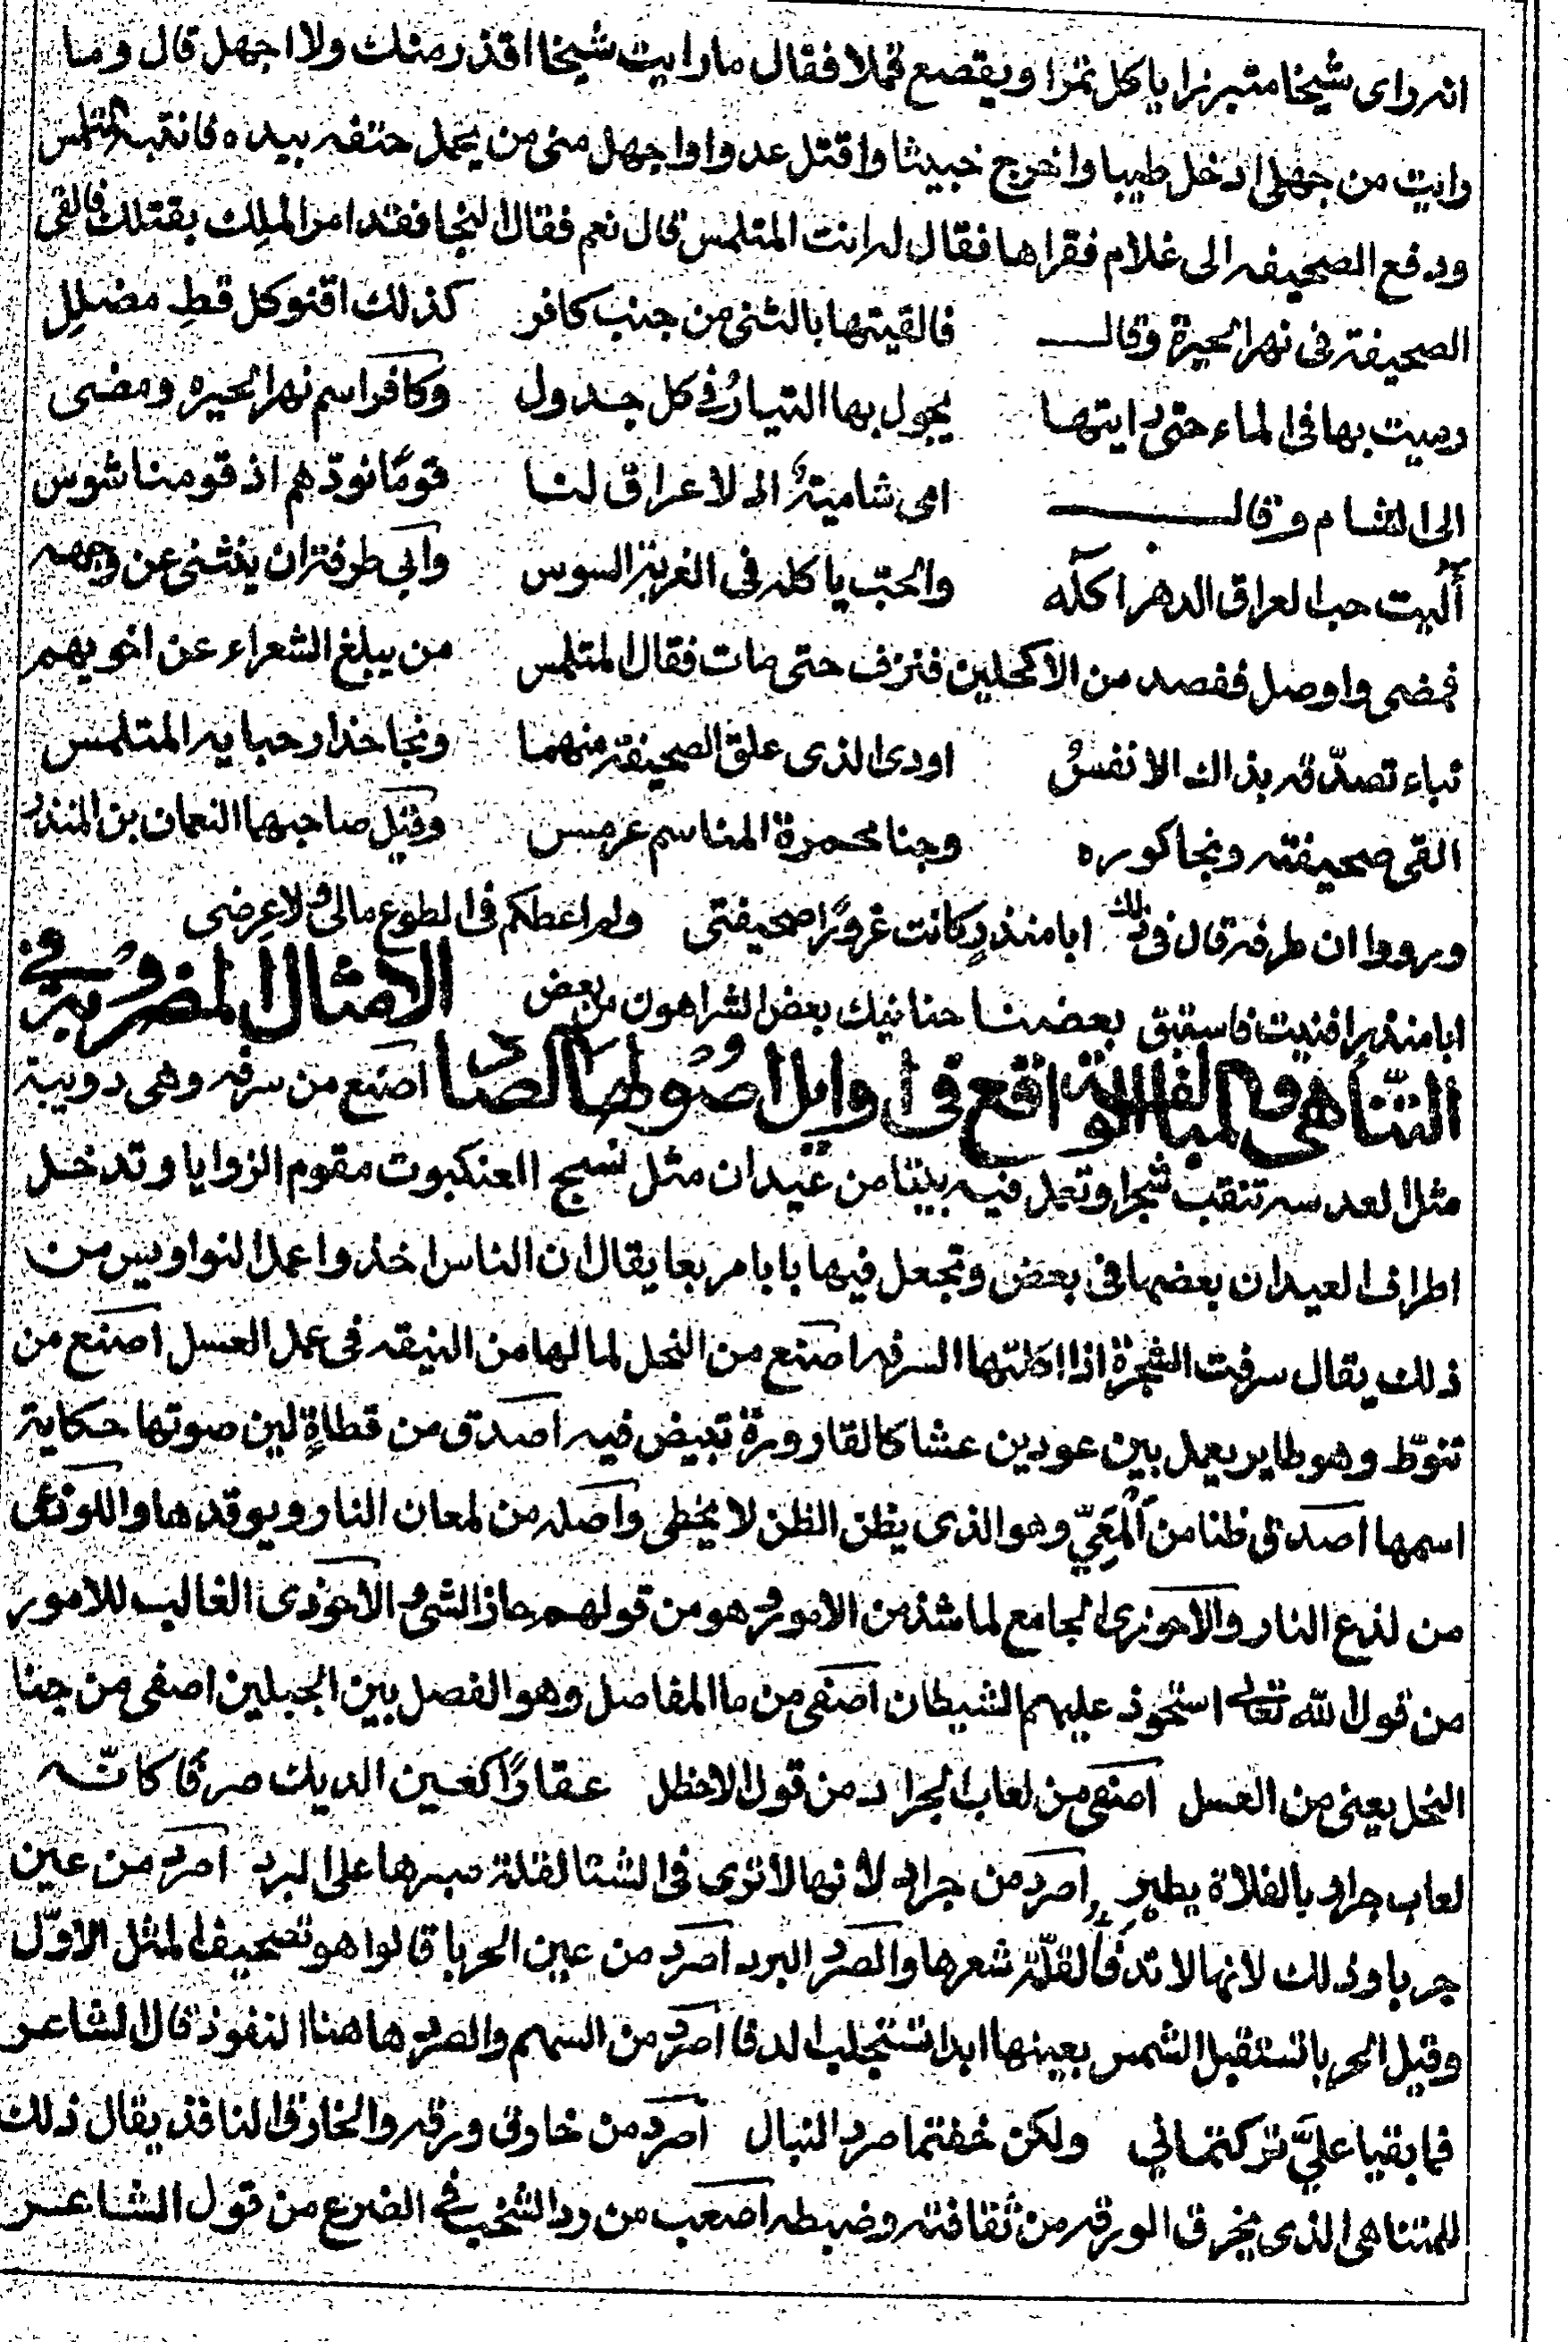 انه راى شيخا متبرزا ياكل تمرا ويقصع قملا فقال ما رايت شيخا اقذر منك ولا اجهل قال وما
رايت من جهلى ادخل طيبا واخرج خبيثا واقتل عدوا واجهل منى من يحمل حتفه بيده فانتبه المتلمس
ودفع الصحيفه الى غلام فقراها فقال له انت المتلمس قال نعم فقال النجا فقد امر الملك بقتلك فالقى
الصحيفة فى نهر الحيرة وقال فالقيتها بالثنى من جنب كافر كذلك اقنو كل قط مضلل
رميت بها فى الماء حتى رايتها يجول بها التيار فى كل جدول وكافر اسم نهر الحيره ومضى
الى الشام وقال امى شامية اذ لا عراق لنا قوما نودهم اذ قومنا شوس
أليت حب العراق الدهر اكله والحب ياكله فى القرية السوس وابى طرفة ان ينثنى عن وجهه
فمضى واوصل ففصد من الاكحلين فنزف حتى مات فقال المتلمس من يبلغ الشعراء عن اخويهم
نباء تصدقه بذاك الانفس اودى الذى علق الصحيفة منهما ونجا حذار حبايه المتلمس
القى صحيفته ونجا كوره وجنا محمرة المناسم عرمس وقيل صاحبهما النعمان بن المنذر
ورووا ان طرفه قال فى ذلك ابا منذر كانت غرورا صحيفتى ولم اعطكم فى الطوع مالى ولا عرضى
ابا منذر افنيت فاستبق بعضنا حنانيك بعض الشر اهون من بعض الامثال المضروبة فى
التناهى والمبالغة الواقع فى اوايل اصولها الصاد اصنع من سرفه وهى دويبة
مثل العدسه تنقب شجرا وتعمل فيه بيتا من عيدان مثل نسيج العنكبوت مقوم الزوايا وتدخل
اطراف العيدان بعضها فى بعض وتجعل فيها بابا مربعا يقال ان الناس اخذوا عمل النواويس من
ذلك يقال سرفت الشجرة اذا اكلتها السرفه اصنع من النحل لما لها من النيقه فى عمل العسل اصنع من
تنوط وهو طاير يعمل بين عودين عشا كالقارورة تبيض فيه اصدق من قطاة لين صوتها حكاية
اسمها اصدق ظنا من ألمعي وهو الذى يظن الظن لا يخطى واصله من لمعان النار ويوقدها واللوذعى
من لذع النار والاحوزى الجامع لما شذ من الامور هو من قولهم حاز الشى الاحوذى الغالب للامور
من قول الله تعالى استحوذ عليهم الشيطان اصفى من ما المفاصل وهو الفصل بين الجبلين اصفى من جنا
النحل يعنى من العسل اصفى من لعاب الجراد من قول الاخطل عقارا كعين الديك صرفا كانه
لعاب جراد بالفلاة يطير اصرد من جراد لانها لا ترى فى الشتا لقلة صبرها على البرد اصرد من عين
جربا وذلك لانها لا تدفأ لقلة شعرها والصرد البرد اصرد من عين الحربا قالوا هو تصحيف المثل الاول
وقيل الحربا تستقبل الشمس بعينها ابدا تستجلب الدفا اصرد من السهم والصرد هاهنا النفوذ قال الشاعر
فما بقيا علي تركتماني ولكن خفتما صرد النبال اصرد من خارق ورقه والخارق النافذ يقال ذلك
للمتناهى الذى يخرق الورقه من ثقافته وضبطه اصعب من رد الشخب فى الضرع من قول الشاعر